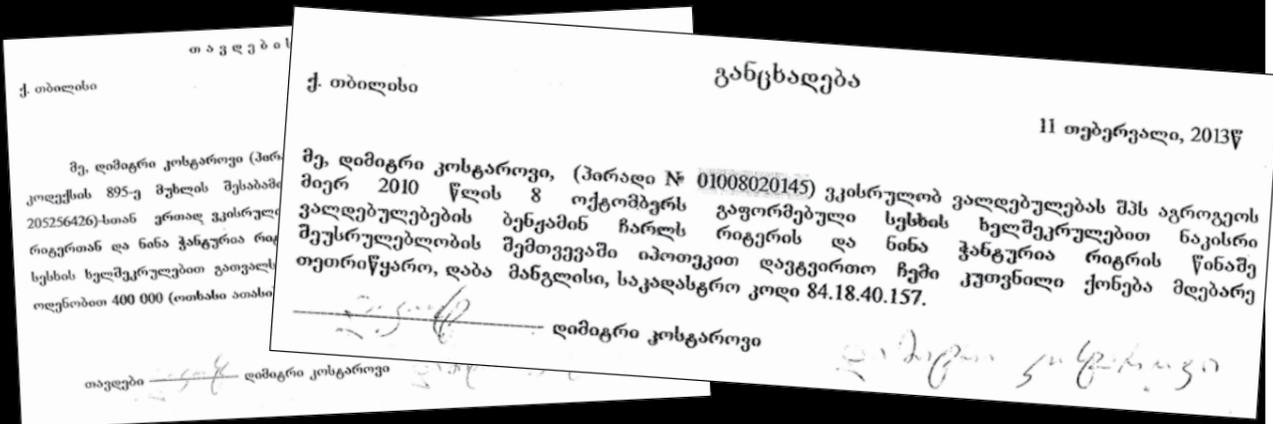 თავდების
ქ. თბილისი
მე, დიმიტრი კოსტაროვი (პირ
კოდექსის 895-ე მუხლის შესაბამ
205256426)-სთან ერთად ვკისრულ
რიტერთან და ნინა ჭანტურია რიტ
სესხის ხელშეკრულებით გათვალს
ოდენობით 400 000 (ოთხასი ათასი
თავდები დიმიტრი კოსტაროვი
განცხადება
ქ. თბილისი
11 თებერვალი, 2013წ
მე, დიმიტრი კოსტაროვი, (პირადი № 01008020145) ვკისრულობ ვალდებულებას შპს აგროგეოს
მიერ 2010 წლის 8 ოქტომბერს გაფორმებული სესხის ხელშეკრულებით ნაკისრი
ვალდებულებების ბენჟამინ ჩარლს რიტერის და ნინა ჭანტურია რიტრის წინაშე
შეუსრულებლობის შემთვევაში იპოთეკით დავტვირთო ჩემი კუთვნილი ქონება მდებარე
თეთრიწყარო, დაბა მანგლისი, საკადასტრო კოდი 84.18.40.157.
დიმიტრი კოსტაროვი